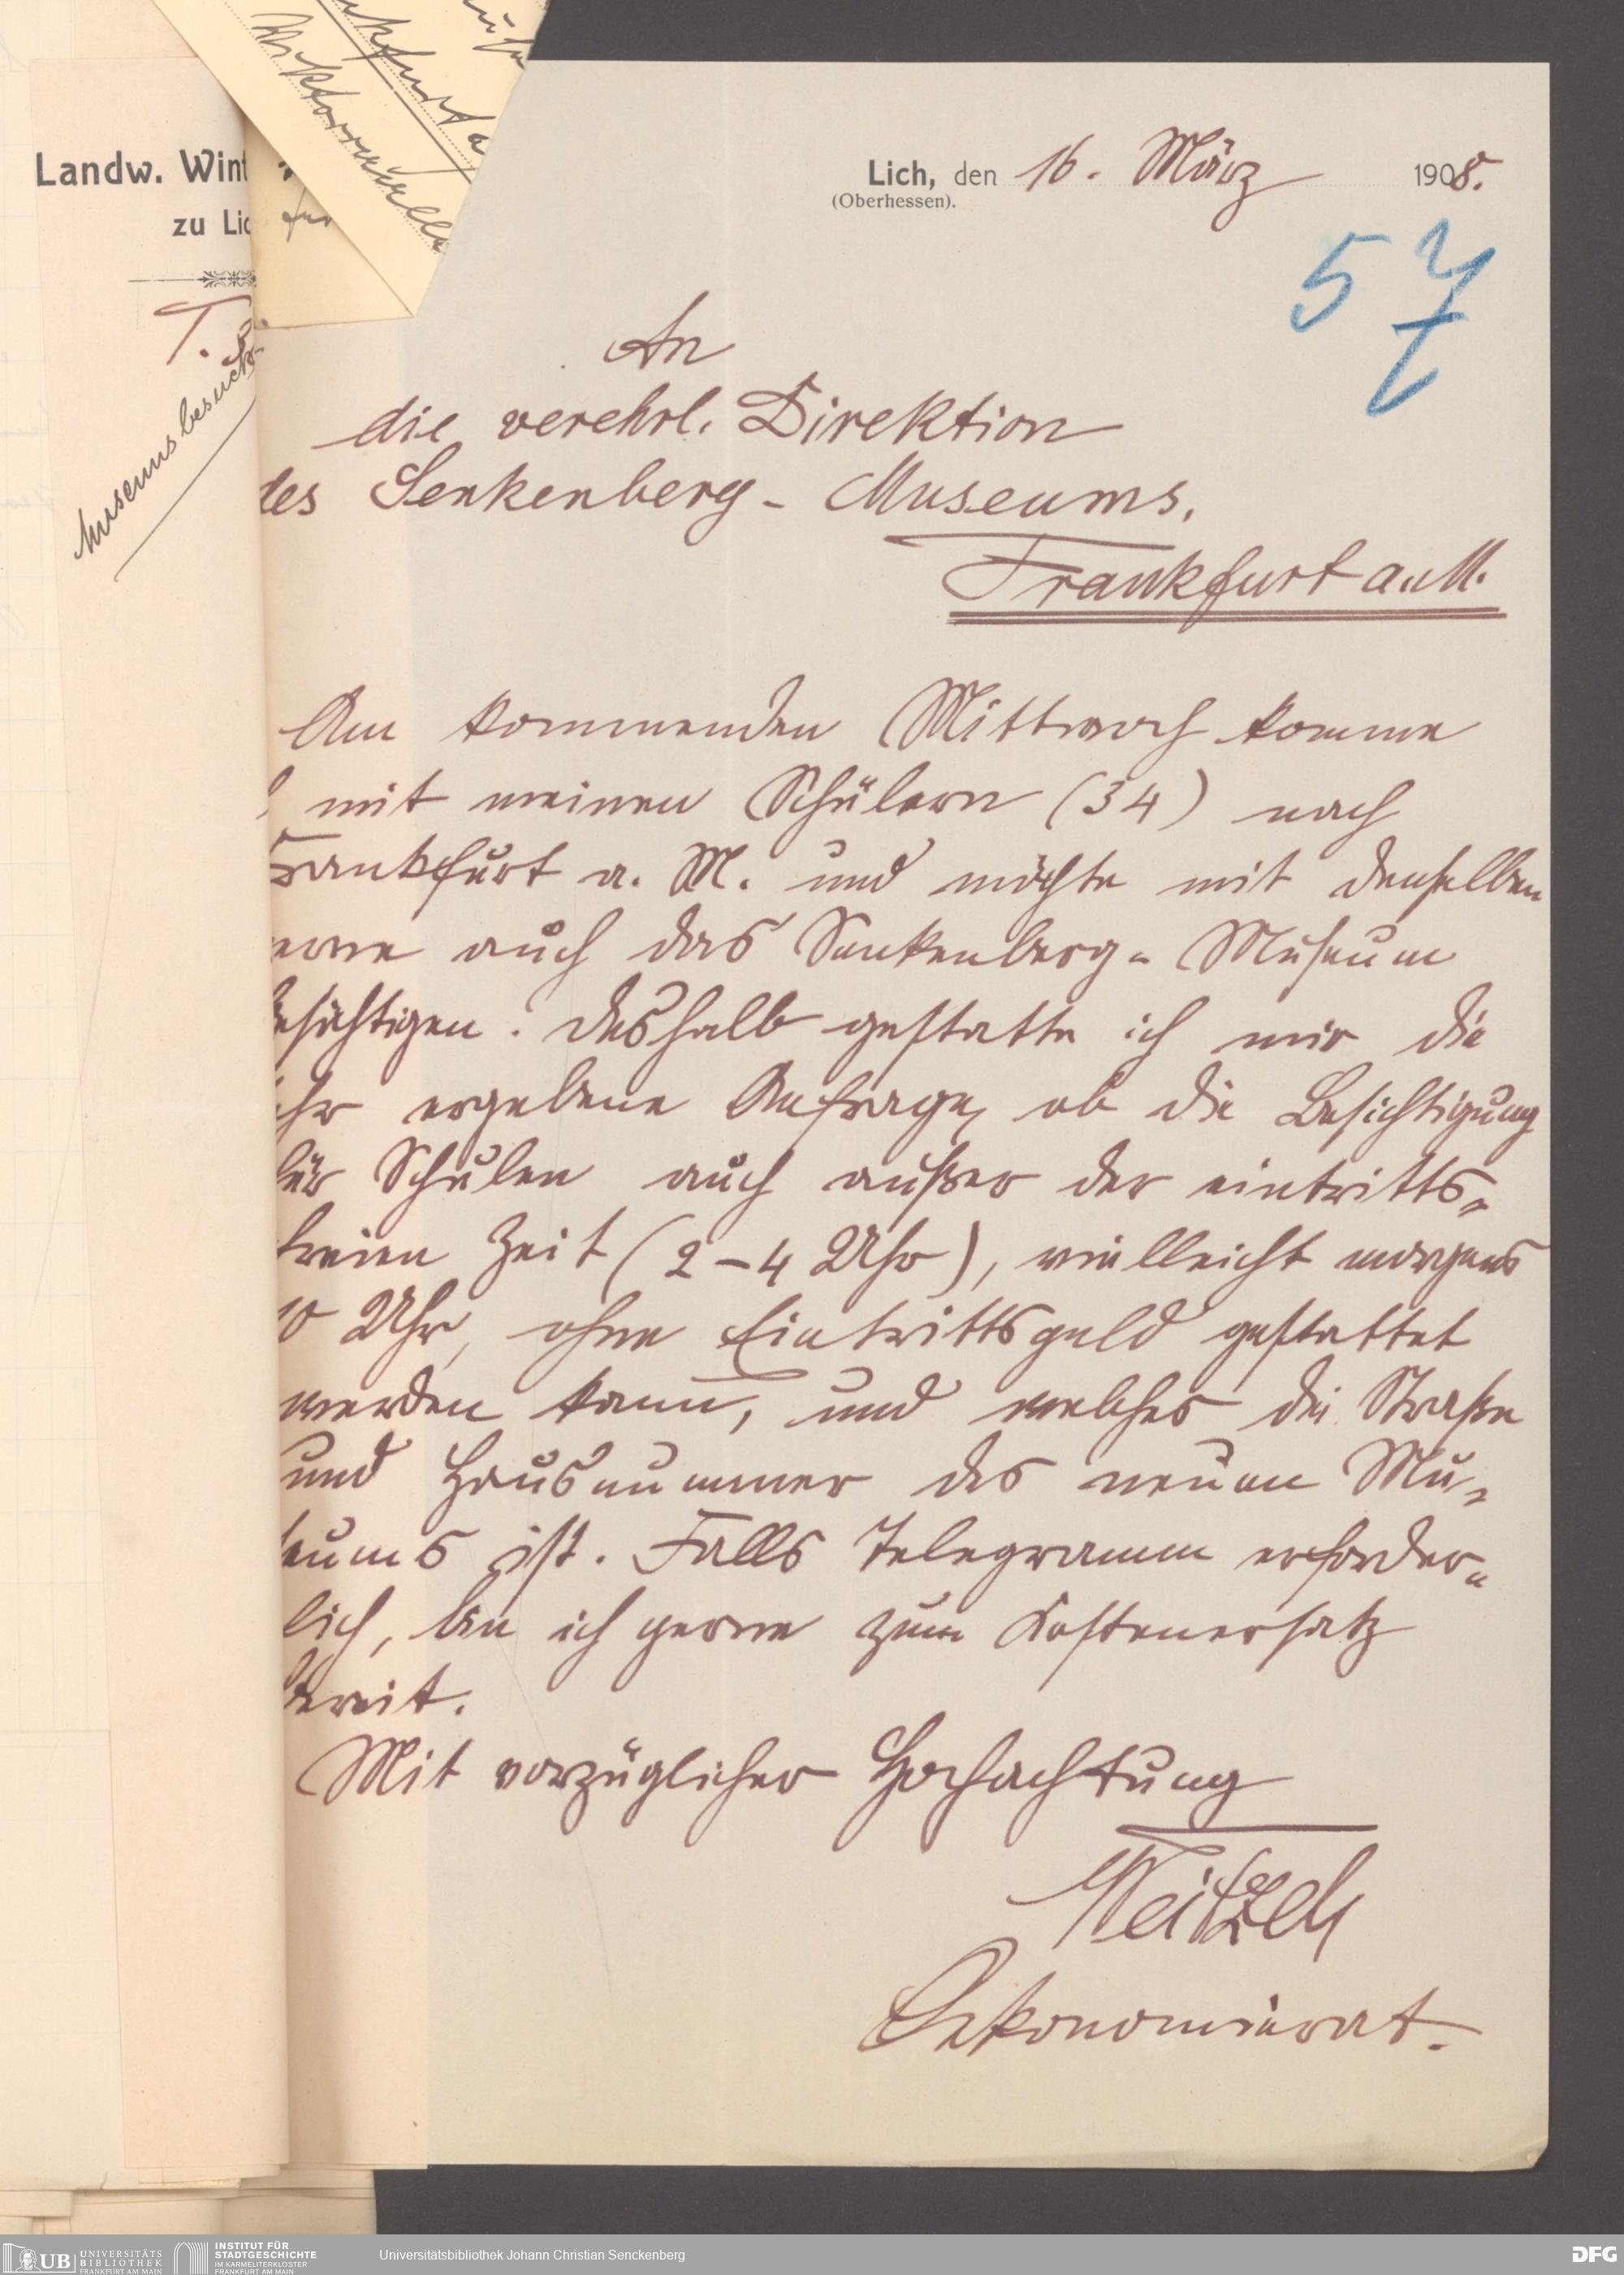 Landw. Wint
zu Lic
Museumsbesuch
Lich, den 16. März 1908.
(Oberhessen).
57
An
die verehrl. Direktion
des Senkenberg-Museums.
Frankfurt a. M.
Am kommenden Mittwoch komme
mit meinen Schülern (34) nach
rankfurt a. M. und möchte mit denselben
erne auch das Senkenberg-Museum
esichtigen. Deshalb gestatte ich mir die
ehr ergebene Anfrage, ob die Besichtigung
für Schulen auch außer der eintritts-
freien Zeit (2-4 Uhr), vielleicht morgens
10 Uhr, ohne Eintrittsgeld gestattet
werden kann, und welches die Straße
und Hausnummer des neuen Mu-
seums ist. Falls Telegramm erforder-
lich, bin ich gerne zum Kostenersatz
bereit.
Mit vorzüglicher Hochachtung
Weitzel
Oekonomierat.
UB UNIVERSITÄTS
BIBLIOTHEK
FRANKFURT AM MAIN
INSTITUT FÜR
STADTGESCHICHTE
IM KARMELITERKLOSTER
FRANKFURT AM MAIN
Universitätsbibliothek Johann Christian Senckenberg
DFG